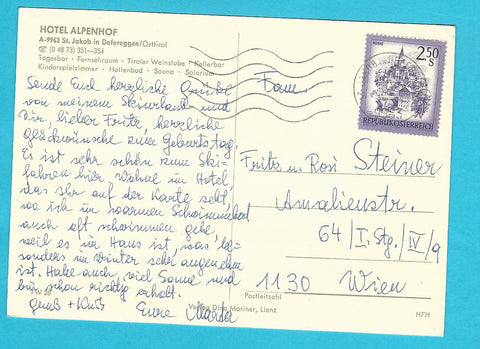 HOTEL ALPENHOF
A-9963 St. Jakob in Defereggen/Osttirol
☎ (0 48 73) 351—354
Tagesbar · Fernsehraum · Tiroler Weinstube · Kellerbar
Kinderspielzimmer · Hallenbad · Sauna · Solarium
Sende Euch herzliche Grüße
von meinem Skiurlaub und
Dir, lieber Fritz, herzliche
Glückwünsche zum Geburtstag.
Es ist sehr schön zum Ski-
fahren hier, wohne im Hotel
das Ihr auf der Karte seht,
wo ich im warmen Schwimmbad
auch oft schwimmen gehe,
weil es im Haus ist, was be-
sonders im Winter sehr angenehm
ist. Habe auch viel Sonne und
bin schon richtig erholt.
Gruß + Kuß
Eure
2.50 S
REPUBLIK ÖSTERREICH
Fam.
Fritz u. Rosi Steiner
Amalienstr.
64/I. Stg./IV/9
1130 Wien
Postleitzahl
Verlag Dina Mariner, Lienz
HFH